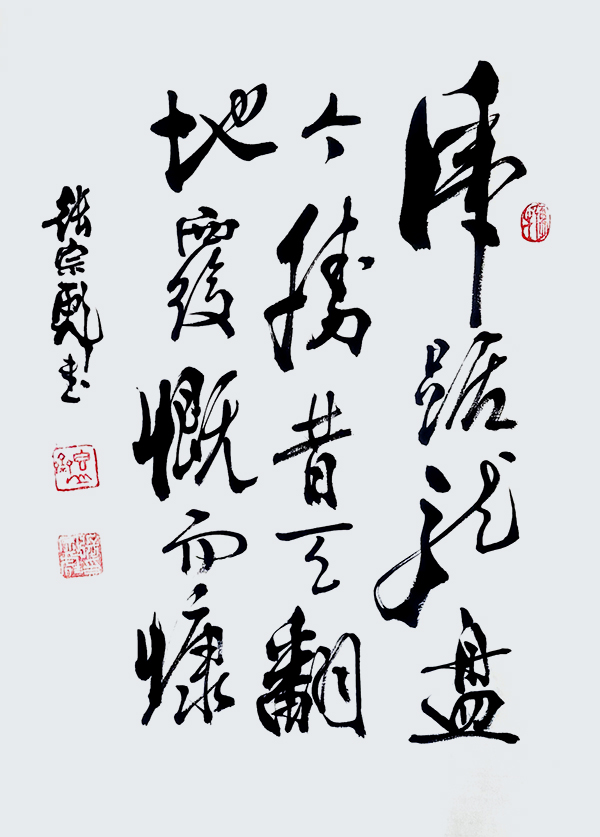 虎踞龍盘
今勝昔天翻
地覆慨而慷
张宗书